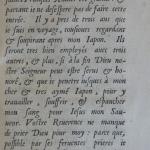 partant ie ne desespere pas de faire cette
entrée. Il y a pres de trois ans que
ie suis en voyage, tousiours regardant
& souspirant apres mon Iapon. Ils
seront tres bien employez avec trois
autres, & plus, si à la fin Dieu no-
stre Seigneur peut estre serui & ho-
noré, & que ie penetre iusques à mon
cher & tres aymé Iapon, pour y
trauailler, souffrir, & espancher
mon sang pour Iesus mon Sau-
ueur. Vostre Reuerence ne manque
de prier Dieu pour moy: parce que,
possible par ses ferventes